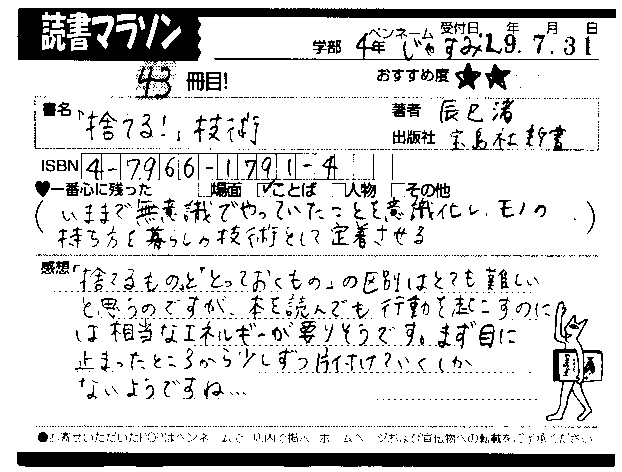 読書マラソン
学部 4年 ペンネーム じゃすみん 受付日 9年7月31日
43冊目! おすすめ度★★
書名「捨てる!」技術 著者 辰巳渚
出版社 宝島社新書
ISBN 4-7966-1791-4
♥一番心に残った □場面 ☑ことば □人物 □その他
(いままで無意識でやっていたことを意識化し、モノの
持ち方を暮らしの技術として定着させる)
感想「捨てるもの」と「とっておくもの」の区別はとても難しい
と思うのですが、本を読んでも行動を起こすのに
は相当なエネルギーが要りそうです。まず目に
止まったところから少しずつ片付けていくしか
ないようですね…